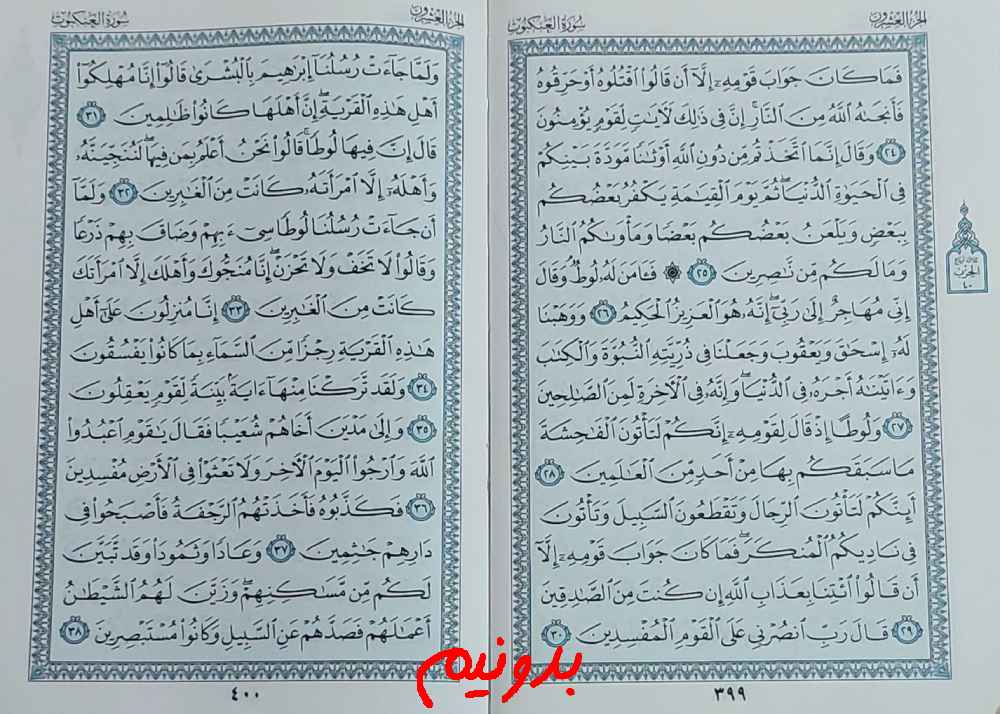 الجزء العشرون
سورة العنكبوت
فَمَا كَانَ جَوَابَ قَوْمِهِۦٓ إِلَّآ أَن قَالُوا۟ ٱقْتُلُوهُ أَوْ حَرِّقُوهُ
فَأَنجَىٰهُ ٱللَّهُ مِنَ ٱلنَّارِ ۚ إِنَّ فِى ذَٰلِكَ لَءَايَٰتٍ لِّقَوْمٍ يُؤْمِنُونَ
٢٤ وَقَالَ إِنَّمَا ٱتَّخَذْتُم مِّن دُونِ ٱللَّهِ أَوْثَٰنًا مَّوَدَّةَ بَيْنِكُمْ
فِى ٱلْحَيَوٰةِ ٱلدُّنْيَا ۖ ثُمَّ يَوْمَ ٱلْقِيَٰمَةِ يَكْفُرُ بَعْضُكُم
بِبَعْضٍ وَيَلْعَنُ بَعْضُكُم بَعْضًا وَمَأْوَىٰكُمُ ٱلنَّارُ
وَمَا لَكُم مِّن نَّٰصِرِينَ ٢٥ ۞ فَـَٔامَنَ لَهُۥ لُوطٌ ۘ وَقَالَ
إِنِّى مُهَاجِرٌ إِلَىٰ رَبِّىٓ ۖ إِنَّهُۥ هُوَ ٱلْعَزِيزُ ٱلْحَكِيمُ ٢٦ وَوَهَبْنَا
لَهُۥٓ إِسْحَٰقَ وَيَعْقُوبَ وَجَعَلْنَا فِى ذُرِّيَّتِهِ ٱلنُّبُوَّةَ وَٱلْكِتَٰبَ
وَءَاتَيْنَٰهُ أَجْرَهُۥ فِى ٱلدُّنْيَا ۖ وَإِنَّهُۥ فِى ٱلْءَاخِرَةِ لَمِنَ ٱلصَّٰلِحِينَ
٢٧ وَلُوطًا إِذْ قَالَ لِقَوْمِهِۦٓ إِنَّكُمْ لَتَأْتُونَ ٱلْفَٰحِشَةَ
مَا سَبَقَكُم بِهَا مِنْ أَحَدٍ مِّنَ ٱلْعَٰلَمِينَ ٢٨
أَئِنَّكُمْ لَتَأْتُونَ ٱلرِّجَالَ وَتَقْطَعُونَ ٱلسَّبِيلَ وَتَأْتُونَ
فِى نَادِيكُمُ ٱلْمُنكَرَ ۖ فَمَا كَانَ جَوَابَ قَوْمِهِۦٓ إِلَّآ
أَن قَالُوا۟ ٱئْتِنَا بِعَذَابِ ٱللَّهِ إِن كُنتَ مِنَ ٱلصَّٰدِقِينَ
٢٩ قَالَ رَبِّ ٱنصُرْنِى عَلَى ٱلْقَوْمِ ٱلْمُفْسِدِينَ ٣٠
٣٩٩
الحزب
٤٠
الجزء العشرون
سورة العنكبوت
وَلَمَّا جَآءَتْ رُسُلُنَآ إِبْرَٰهِيمَ بِٱلْبُشْرَىٰ قَالُوٓا۟ إِنَّا مُهْلِكُوٓا۟
أَهْلِ هَٰذِهِ ٱلْقَرْيَةِ ۖ إِنَّ أَهْلَهَا كَانُوا۟ ظَٰلِمِينَ ٣١
قَالَ إِنَّ فِيهَا لُوطًا ۚ قَالُوا۟ نَحْنُ أَعْلَمُ بِمَن فِيهَا ۖ لَنُنَجِّيَنَّهُۥ
وَأَهْلَهُۥٓ إِلَّا ٱمْرَأَتَهُۥ كَانَتْ مِنَ ٱلْغَٰبِرِينَ ٣٢ وَلَمَّآ
أَن جَآءَتْ رُسُلُنَا لُوطًا سِىٓءَ بِهِمْ وَضَاقَ بِهِمْ ذَرْعًا
وَقَالُوا۟ لَا تَخَفْ وَلَا تَحْزَنْ ۖ إِنَّا مُنَجُّوكَ وَأَهْلَكَ إِلَّا ٱمْرَأَتَكَ
كَانَتْ مِنَ ٱلْغَٰبِرِينَ ٣٣ إِنَّا مُنزِلُونَ عَلَىٰٓ أَهْلِ
هَٰذِهِ ٱلْقَرْيَةِ رِجْزًا مِّنَ ٱلسَّمَآءِ بِمَا كَانُوا۟ يَفْسُقُونَ
٣٤ وَلَقَد تَّرَكْنَا مِنْهَآ ءَايَةًۢ بَيِّنَةً لِّقَوْمٍ يَعْقِلُونَ
٣٥ وَإِلَىٰ مَدْيَنَ أَخَاهُمْ شُعَيْبًا فَقَالَ يَٰقَوْمِ ٱعْبُدُوا۟
ٱللَّهَ وَٱرْجُوا۟ ٱلْيَوْمَ ٱلْءَاخِرَ وَلَا تَعْثَوْا۟ فِى ٱلْأَرْضِ مُفْسِدِينَ
٣٦ فَكَذَّبُوهُ فَأَخَذَتْهُمُ ٱلرَّجْفَةُ فَأَصْبَحُوا۟ فِى
دَارِهِمْ جَٰثِمِينَ ٣٧ وَعَادًا وَثَمُودَا۟ وَقَد تَّبَيَّنَ
لَكُم مِّن مَّسَٰكِنِهِمْ ۖ وَزَيَّنَ لَهُمُ ٱلشَّيْطَٰنُ
أَعْمَٰلَهُمْ فَصَدَّهُمْ عَنِ ٱلسَّبِيلِ وَكَانُوا۟ مُسْتَبْصِرِينَ ٣٨
٤٠٠
بدونیم